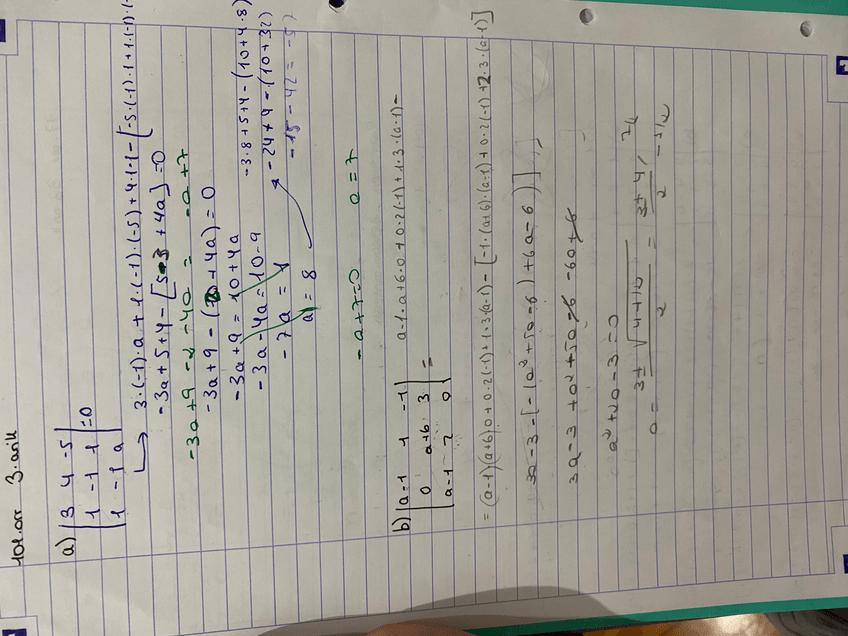 101.orr 3.arik
a) |3 4 -5|
|1 -1 1| =0
|1 -1 a|
↳ 3·(-1)·a + 1·(-1)·(-5) + 4·1·1 - [-5·(-1)·1 + 1·(-1)·
-3a+5+4 - [5-3+4a] =0
-3a+9 -2 -4a = -a+7
-3a+9 - ( +4a) = 0
-3a+9 = 10+4a
-3a-4a = 10-9
-7a = 1
a = 8
-3·8+5+4-(10+4·8)
-24+9-(10+32)
-15-42=-57
-a+7=0 a=7
b) |a-1 1 -1|
|0 a+6 3|
|a-1 2 0| =
a-1·a+6·0+0·2(-1)+1·3·(a-1)-
= (a-1)(a+6)·0+0·2(-1)+1·3(a-1) - [-1·(a+6)·(a-1)+0·2(-1)+2·3·(a-1)]
3a-3-[-(a²+5a-6)+6a-6)]
3a-3+a²+5a-6-6a+6
a²+2a-3=0
a= 3± √4+12 / 2 = 3±4 / 2